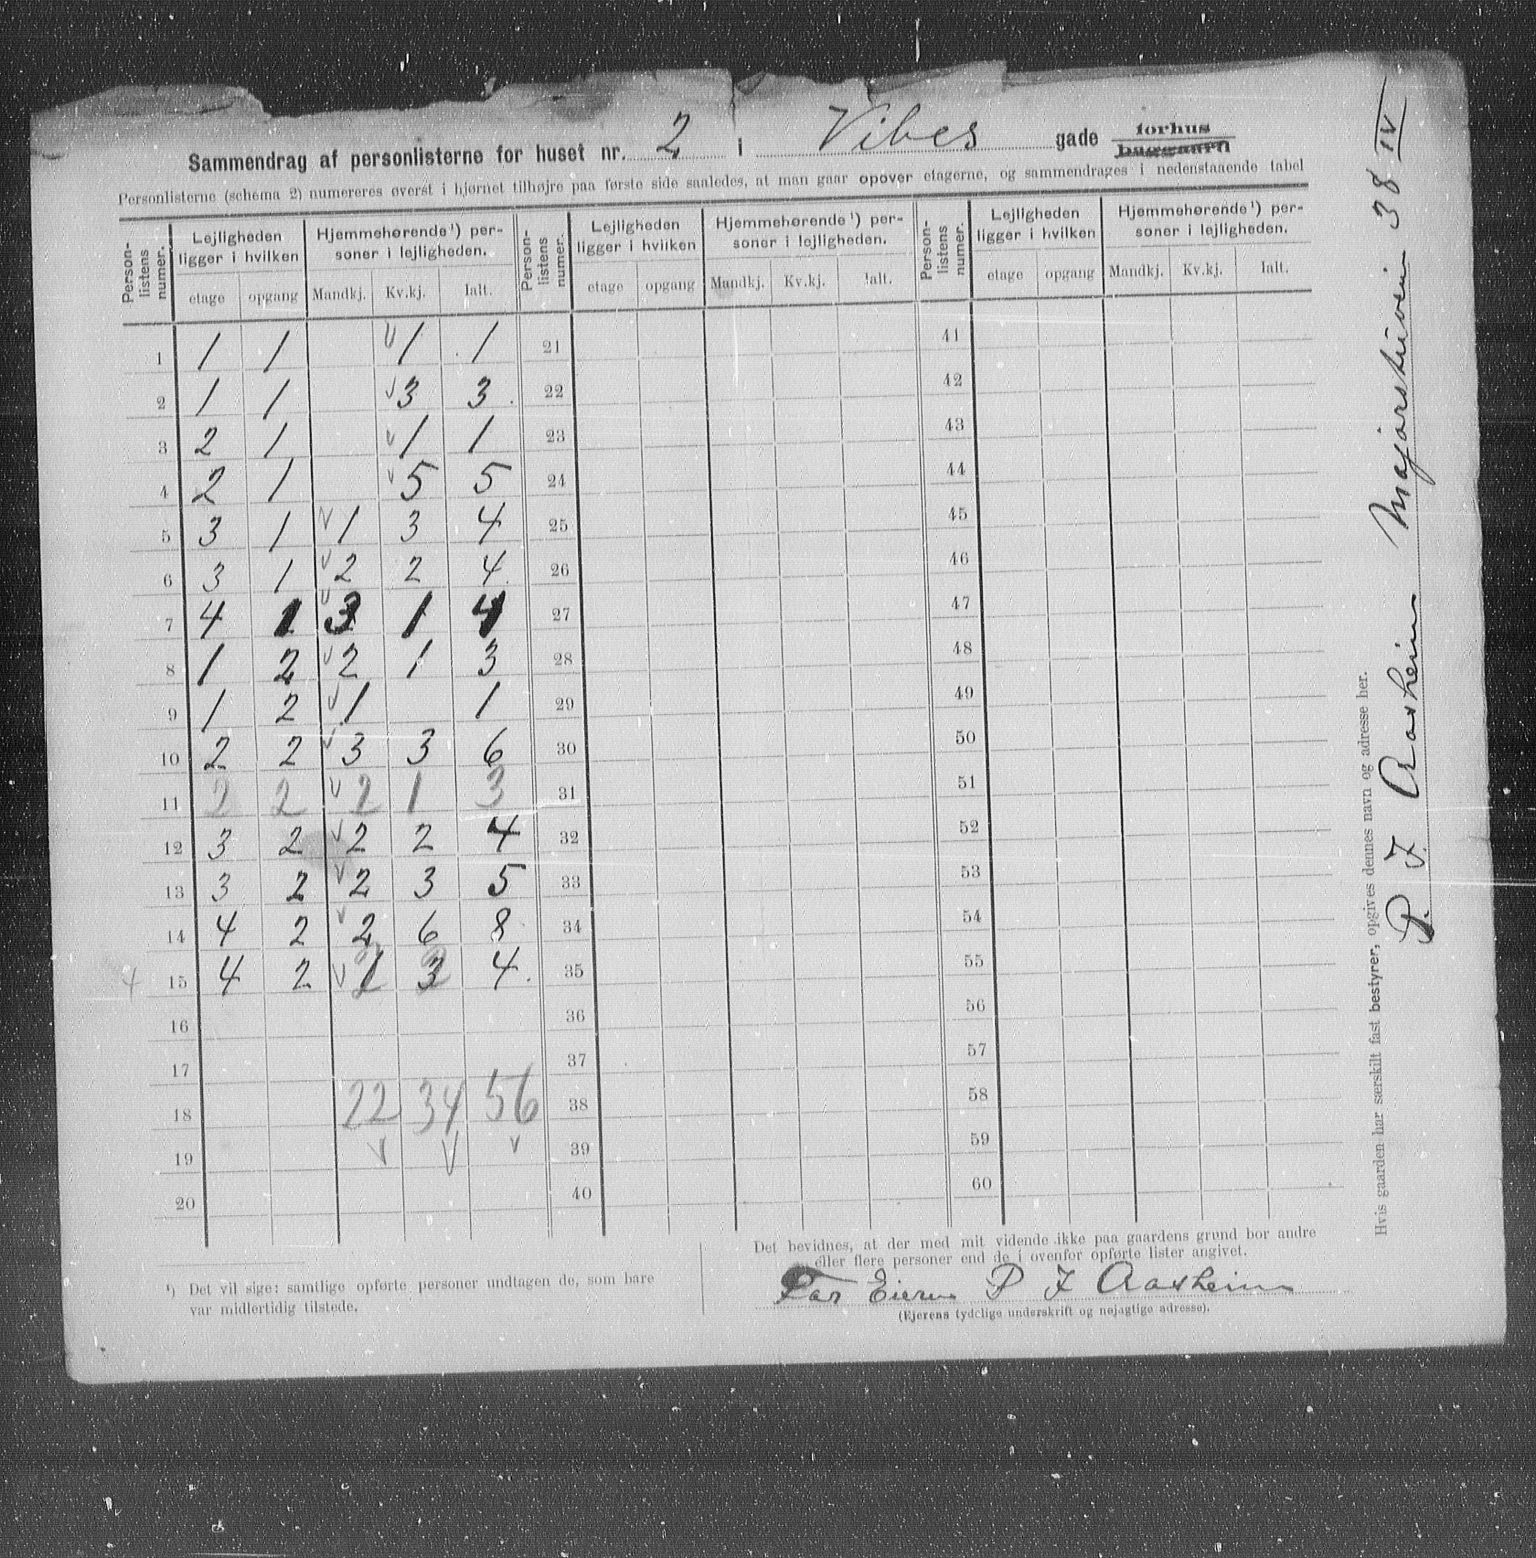 Sammendrag af personlisterne for huset nr. 2 i Vibes gade forhus baggaard
Personlisterne (schema 2) numereres øverst i hjørnet tilhøjre paa første side saaledes, at man gaar opover etagerne, og sammendrages i nedenstaaende tabel
Person-listens numer. Lejligheden ligger i hvilken Hjemmehørende ¹) personer i lejligheden. Person-listens numer. Lejligheden ligger i hvilken Hjemmehørende ¹) personer i lejligheden. Person-listens numer. Lejligheden ligger i hvilken Hjemmehørende ¹) personer i lejligheden.
etage opgang Mandkj. Kv.kj. Ialt. etage opgang Mandkj. Kv.kj. Ialt. etage opgang Mandkj. Kv.kj. Ialt.
1 1 1 1 1 21 41
2 1 1 3 3 22 42
3 2 1 1 1 23 43
4 2 1 5 5 24 44
5 3 1 1 3 4 25 45
6 3 1 2 2 4 26 46
7 4 1 3 1 4 27 47
8 1 2 2 1 3 28 48
9 1 2 1 1 29 49
10 2 2 3 3 6 30 50
11 2 2 2 1 3 31 51
12 3 2 2 2 4 32 52
13 3 2 2 3 5 33 53
14 4 2 2 6 8 34 54
4 15 4 2 1 3 4 35 55
16 36 56
17 37 57
18 22 34 56 38 58
19 39 59
20 40 60
¹) Det vil sige: samtlige opførte personer undtagen de, som bare
var midlertidig tilstede.
Det bevidnes, at der med mit vidende ikke paa gaardens grund bor andre
eller flere personer end de i ovenfor opførte lister angivet.
For Eieren P J Aasheim
(Ejerens tydelige underskrift og nøjagtige adresse).
Hvis gaarden har særskilt fast bestyrer, opgives dennes navn og adresse her.
P. J. Aasheim Majorstuvein 38 IV